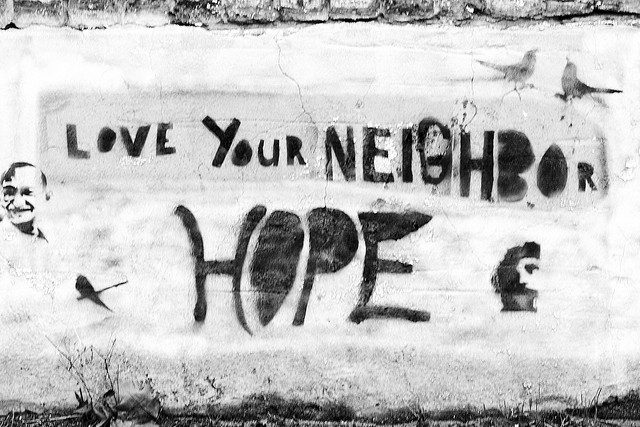 LOVE YOUR NEIGHBOR
HOPE